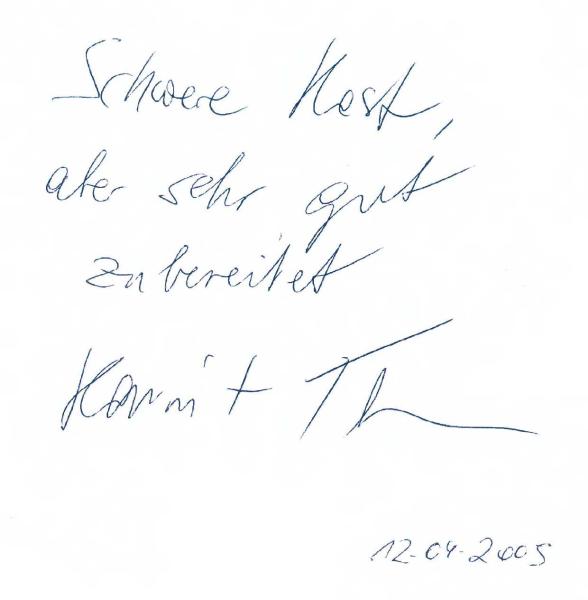 Schwere Kost,
aber sehr gut
zubereitet
12.04.2005